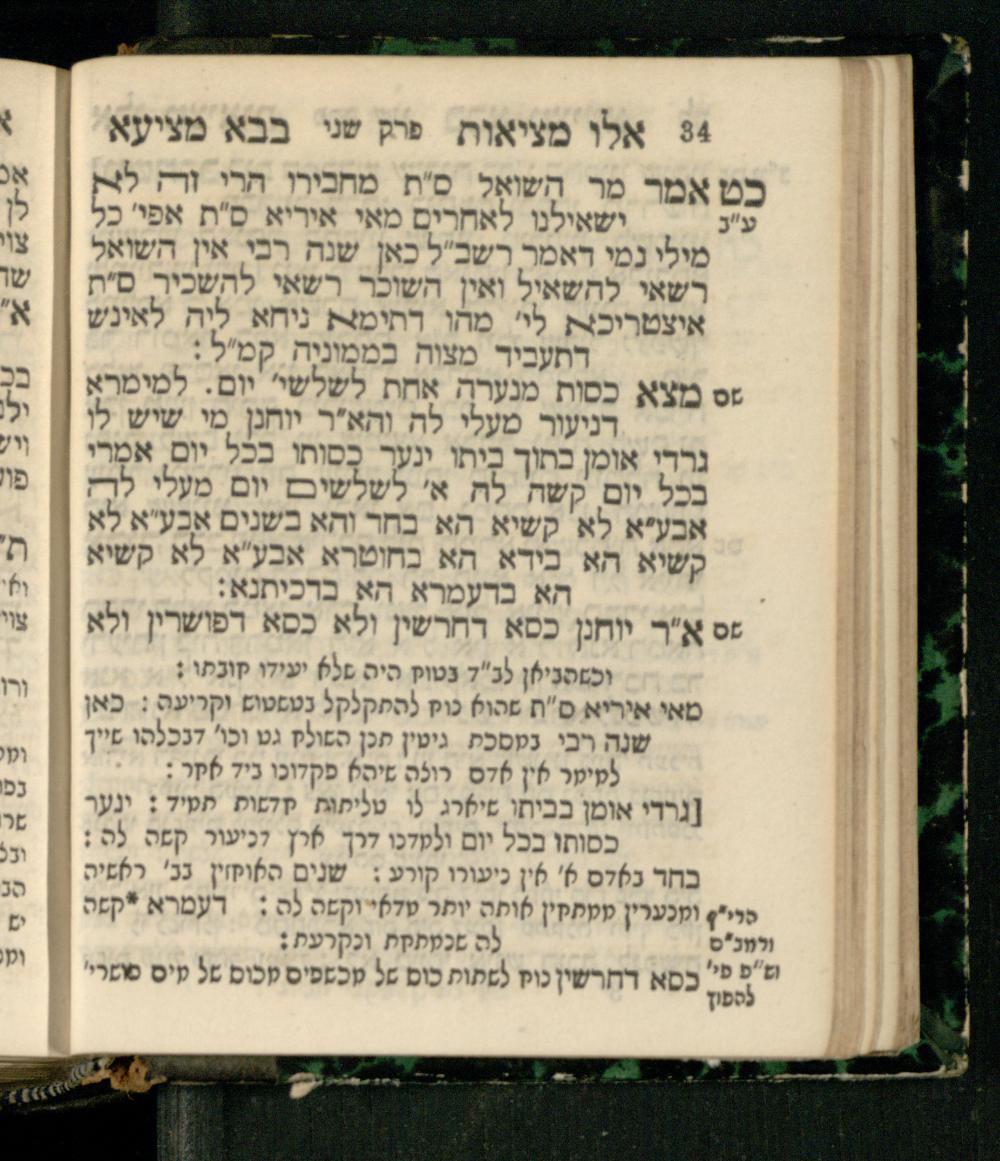 34 אלו מציאות פרק שני בבא מציעא
כט אמר מר השואל ס״ת מחבירו הרי זה לא
ע״ב ישאילנו לאחרים מאי איריא ס״ת אפי׳ כל
מילי נמי דאמר רשב״ל כאן שנה רבי אין השואל
רשאי להשאיל ואין השוכר רשאי להשכיר ס״ת
איצטריכא לי׳ מהו דתימא ניחא ליה לאינש
דתעביד מצוה בממוניה קמ״ל:
שם מצא כסות מנערה אחת לשלשי׳ יום. למימרא
דניעור מעלי לה והא״ר יוחנן מי שיש לו
גרדי אומן בתוך ביתו ינער כסותו בכל יום אמרי
בכל יום קשה לה א׳ לשלשים יום מעלי לה
אבע״א לא קשיא הא בחד והא בשנים אבע״א לא
קשיא הא בידא הא בחוטרא אבע״א לא קשיא
הא בדעמרא הא בדכיתנא:
שם א״ר יוחנן כסא דחרשין ולא כסא דפושרין ולא
וכשהביאן לב״ד בטוח היה שלא יעידו קרובתו:
מאי איריא ס״ת שהוא נוח להתקלקל בטשטוש וקריעה: כאן
שנה רבי במסכת גיטין תנן השולח גט וכו׳ דבכלהו שייך
למימר אין אדם רוצה שיהא פקדונו ביד אחר:
[גרדי אומן בביתו שיארג לו טליתות חדשות תמיד: ינער
כסותו בכל יום ולמדנו דרך ארץ דניעור קשה לה:
בחד באדם א׳ אין ניעורו קורע: שנים האוחזין בב׳ ראשיה
ומנערין ממתחין אותה יותר מדאי וקשה לה: דעמרא *קשה
לה שנמתחת ונקרעת:
כסא דחרשין נוח לשתות כוס של מכשפים מכוס של מים פושרי׳
הרי״ף
ורמב״ם
וש״פ פי׳
להפוך